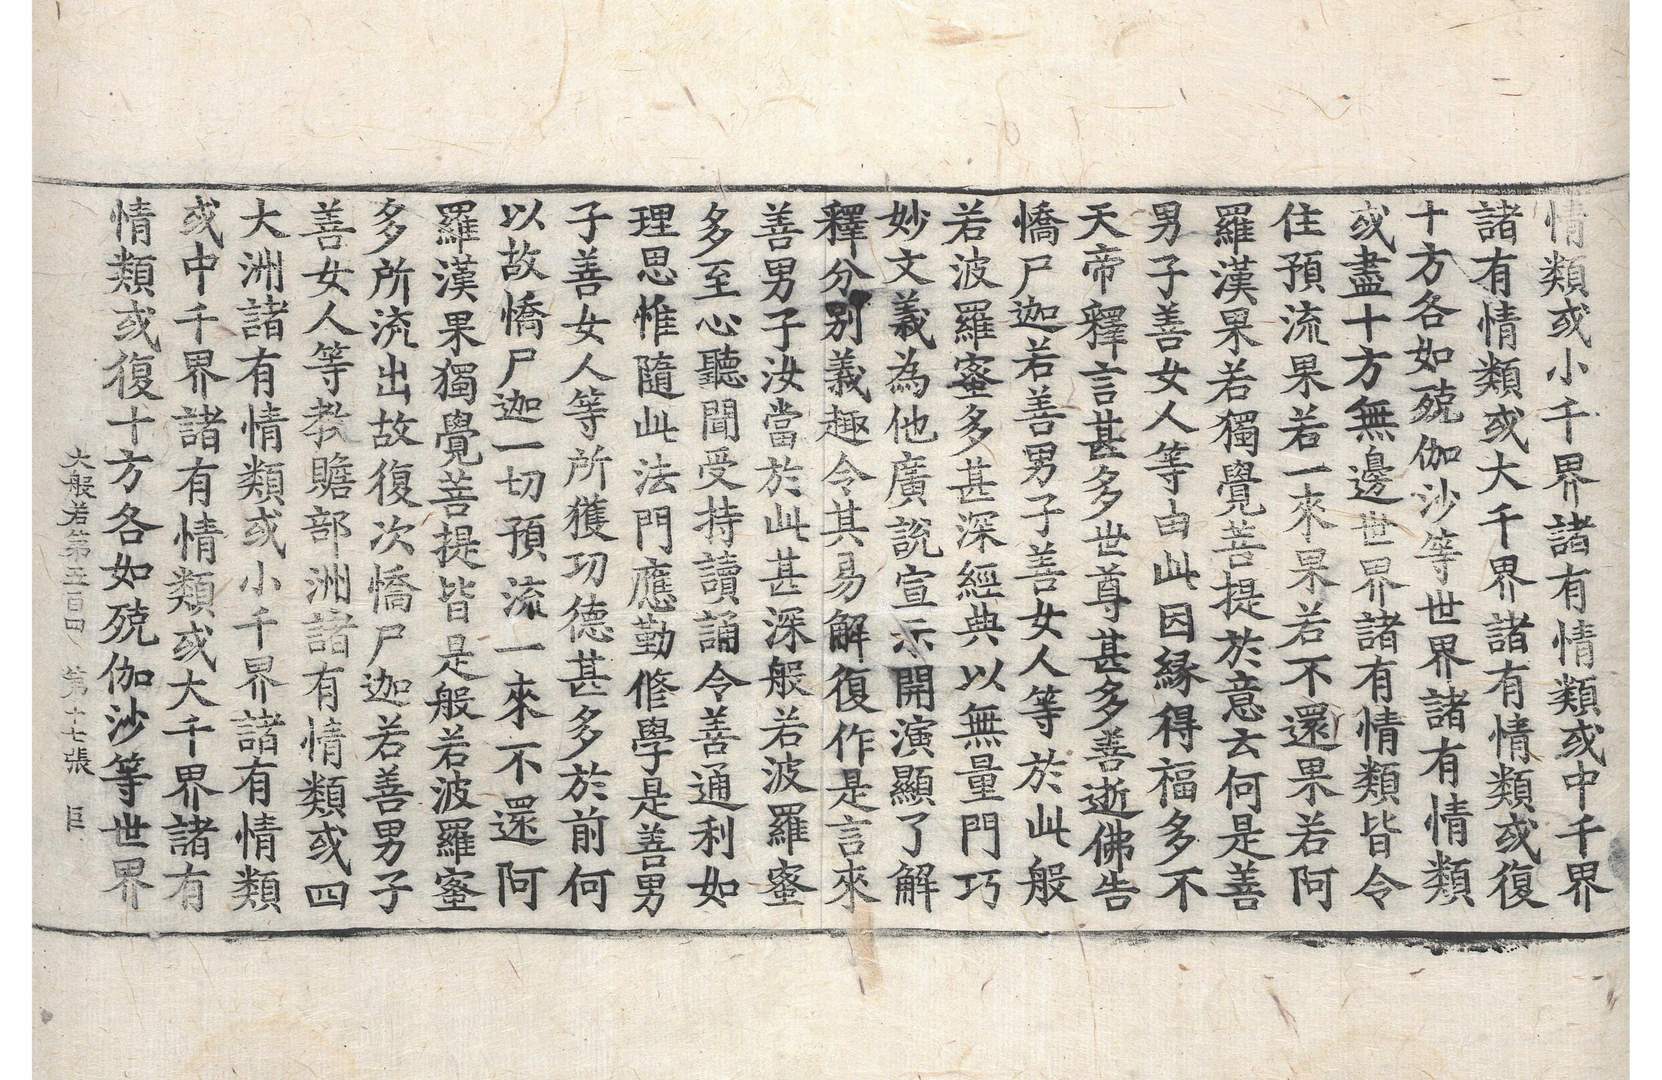 情類或小千界諸有情類或中千界
諸有情類或大千界諸有情類或復
十方各如殑伽沙等世界諸有情類
或盡十方無邊世界諸有情類皆令
住預流果若一來果若不還果若阿
羅漢果若獨覺菩提於意云何是善
男子善女人等由此因縁得福多不
天帝釋言甚多世尊甚多善逝佛告
憍尸迦若善男子善女人等於此般
若波羅蜜多甚深經典以無量門巧
妙文義為他廣說宣示開演顯了解
釋分別義趣令其易解復作是言來
善男子汝當於此甚深般若波羅蜜
多至心聽聞受持讀誦令善通利如
理思惟隨此法門應勤修學是善男
子善女人等所獲功德甚多於前何
以故憍尸迦一切預流一來不還阿
羅漢果獨覺菩提皆是般若波羅蜜
多所流出故復次憍尸迦若善男子
善女人等教贍部洲諸有情類或四
大洲諸有情類或小千界諸有情類
或中千界諸有情類或大千界諸有
情類或復十方各如殑伽沙等世界
大般若第五百四 第十七張 巨